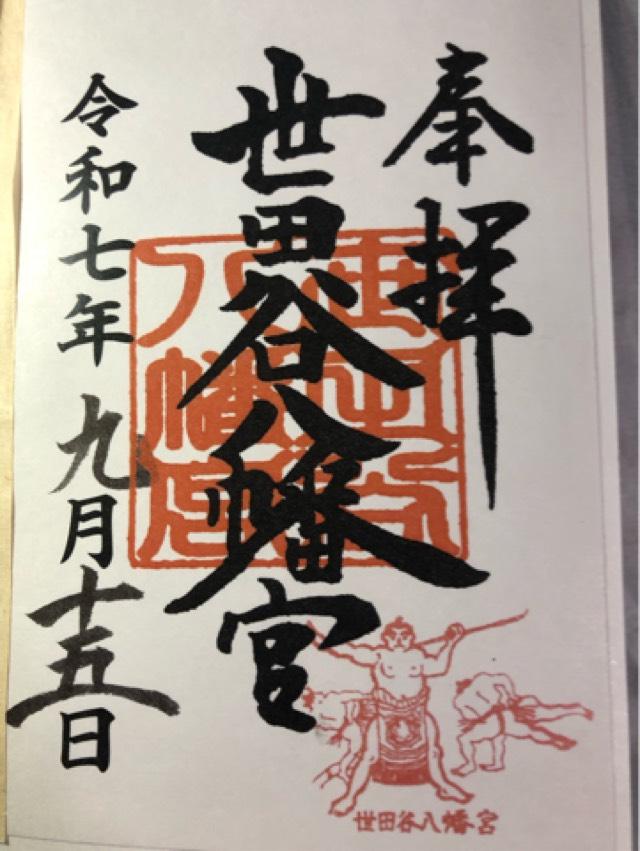 奉拝
世田谷八幡宮
令和七年九月十五日
世田谷八幡宮